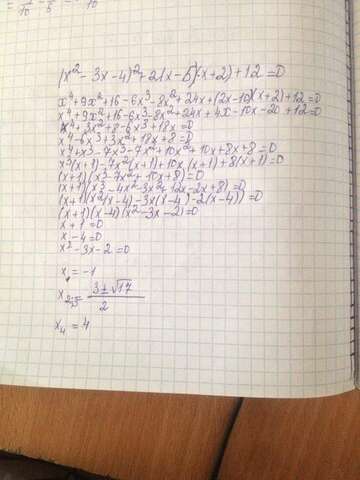 (x²-3x-4)²+2(x-5)(x+2)+12=0
x⁴+9x²+16-6x³-8x²+24x+(2x-10)(x+2)+12=0
x⁴+9x²+16-6x³-8x²+24x+4x-10x-20+12=0
x⁴+3x²+8-6x³+18x=0
x⁴-6x³+3x²+18x+8=0
x⁴+x³-7x³-7x²+10x²+10x+8x+8=0
x³(x+1)-7x²(x+1)+10x(x+1)+8(x+1)=0
(x+1)(x³-7x²+10x+8)=0
(x+1)(x³-4x²-3x²+12x-2x+8)=0
(x+1)(x²(x-4)-3x(x-4)-2(x-4))=0
(x+1)(x-4)(x²-3x-2)=0
x+1=0
x-4=0
x²-3x-2=0
x₁=-1
x₂,₃=3±√17/2
x₄=4